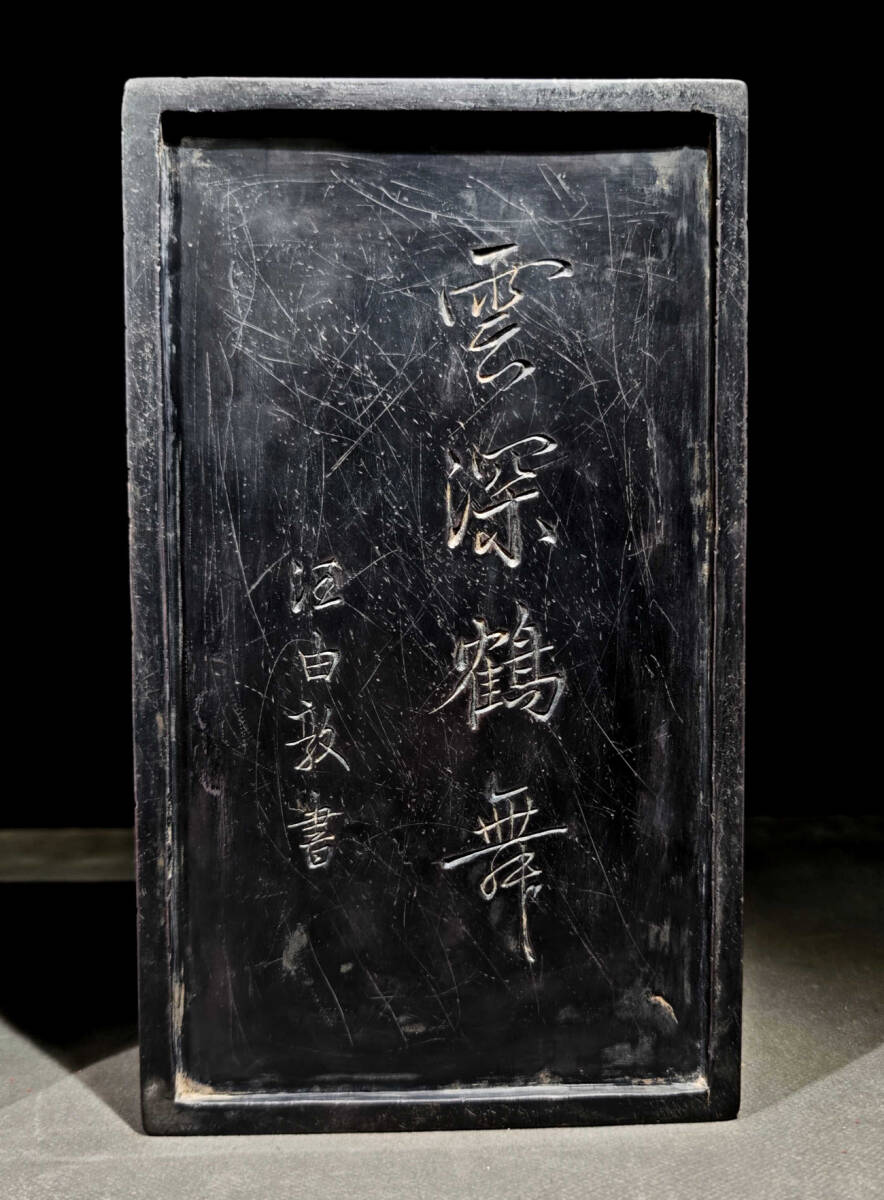 雲深鶴舞
汪由敦書